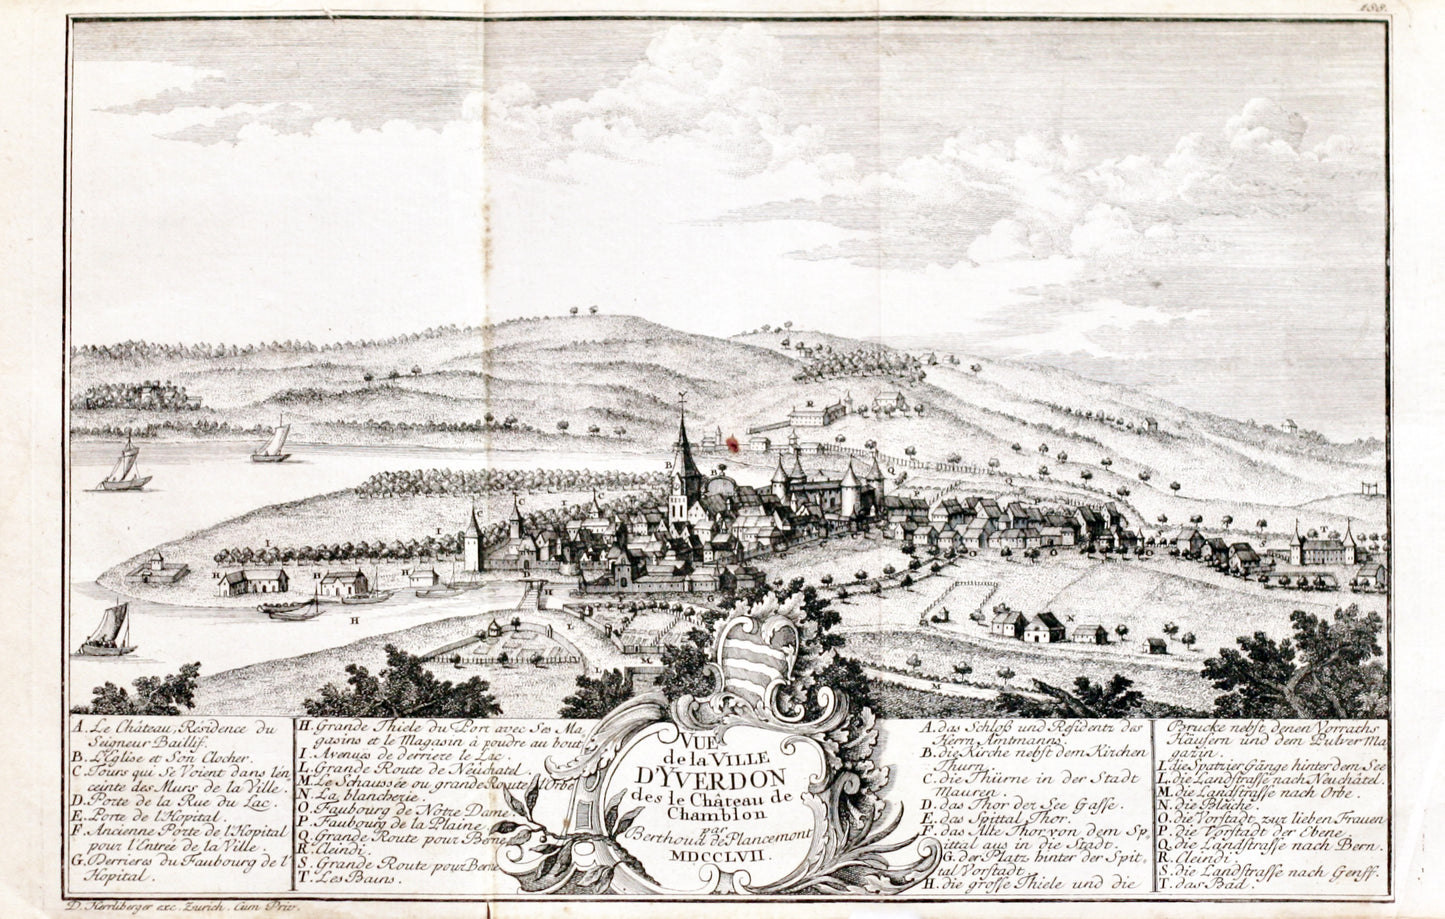 188.
A. Le Château, Résidence du
Seigneur Baillif.
B. L'Eglise et Son Clocher.
C. Tours qui Se Voient dans l'en
ceinte des Murs de la Ville.
D. Porte de la Rue du Lac.
E. Porte de l'Hopital.
F. Ancienne Porte de l'Hopital
pour l'Entrée de la Ville.
G. Derrieres du Faubourg de l'
Hopital.
H. Grande Thiele du Port avec Ses Ma
gasins et le Magasin à poudre au bout
I. Avenues de derriere le Lac.
L. Grande Route de Neuchatel.
M. Le Schaussée ou grande Route d'Orbe
N. La blancherie.
O. Faubourg de Notre Dame
P. Faubourg de la Plaine
Q. Grande Route pour Berne
R. Cleindi.
S. Grande Route pour Berne
T. Les Bains.
VUE
de la VILLE
D'YVERDON
des le Château de
Chamblon
par
Berthoud de Plancemont
MDCCLVII.
A. das Schloß und Residentz des
Herrn Amtmanns
B. die Kirche nebst dem Kirchen
Thurn.
C. die Thürne in der Stadt
Mauren.
D. das Thor der See Gasse.
E. das Spittal Thor.
F. das Alte Thor von dem Sp,
ittal aus in die Stadt.
G. der Platz hinter der Spit,
tal Vorstadt
H. die grosse Thiele und die
Brucke nebst denen Vorraths
Häusern und dem Pulver Ma
gazin
I. die Spatzier Gänge hinter dem See
L. die Landstrasse nach Neuchâtel.
M. die Landstrasse nach Orbe.
N. die Bleiche.
O. die Vorstadt zur lieben Frauen
P. die Vorstadt der Ebene.
Q. die Landstrasse nach Bern.
R. Cleindi.
S. die Landstrasse nach Genff.
T. das Bad.
D. Herrliberger exc. Zurich. Cum Priv.